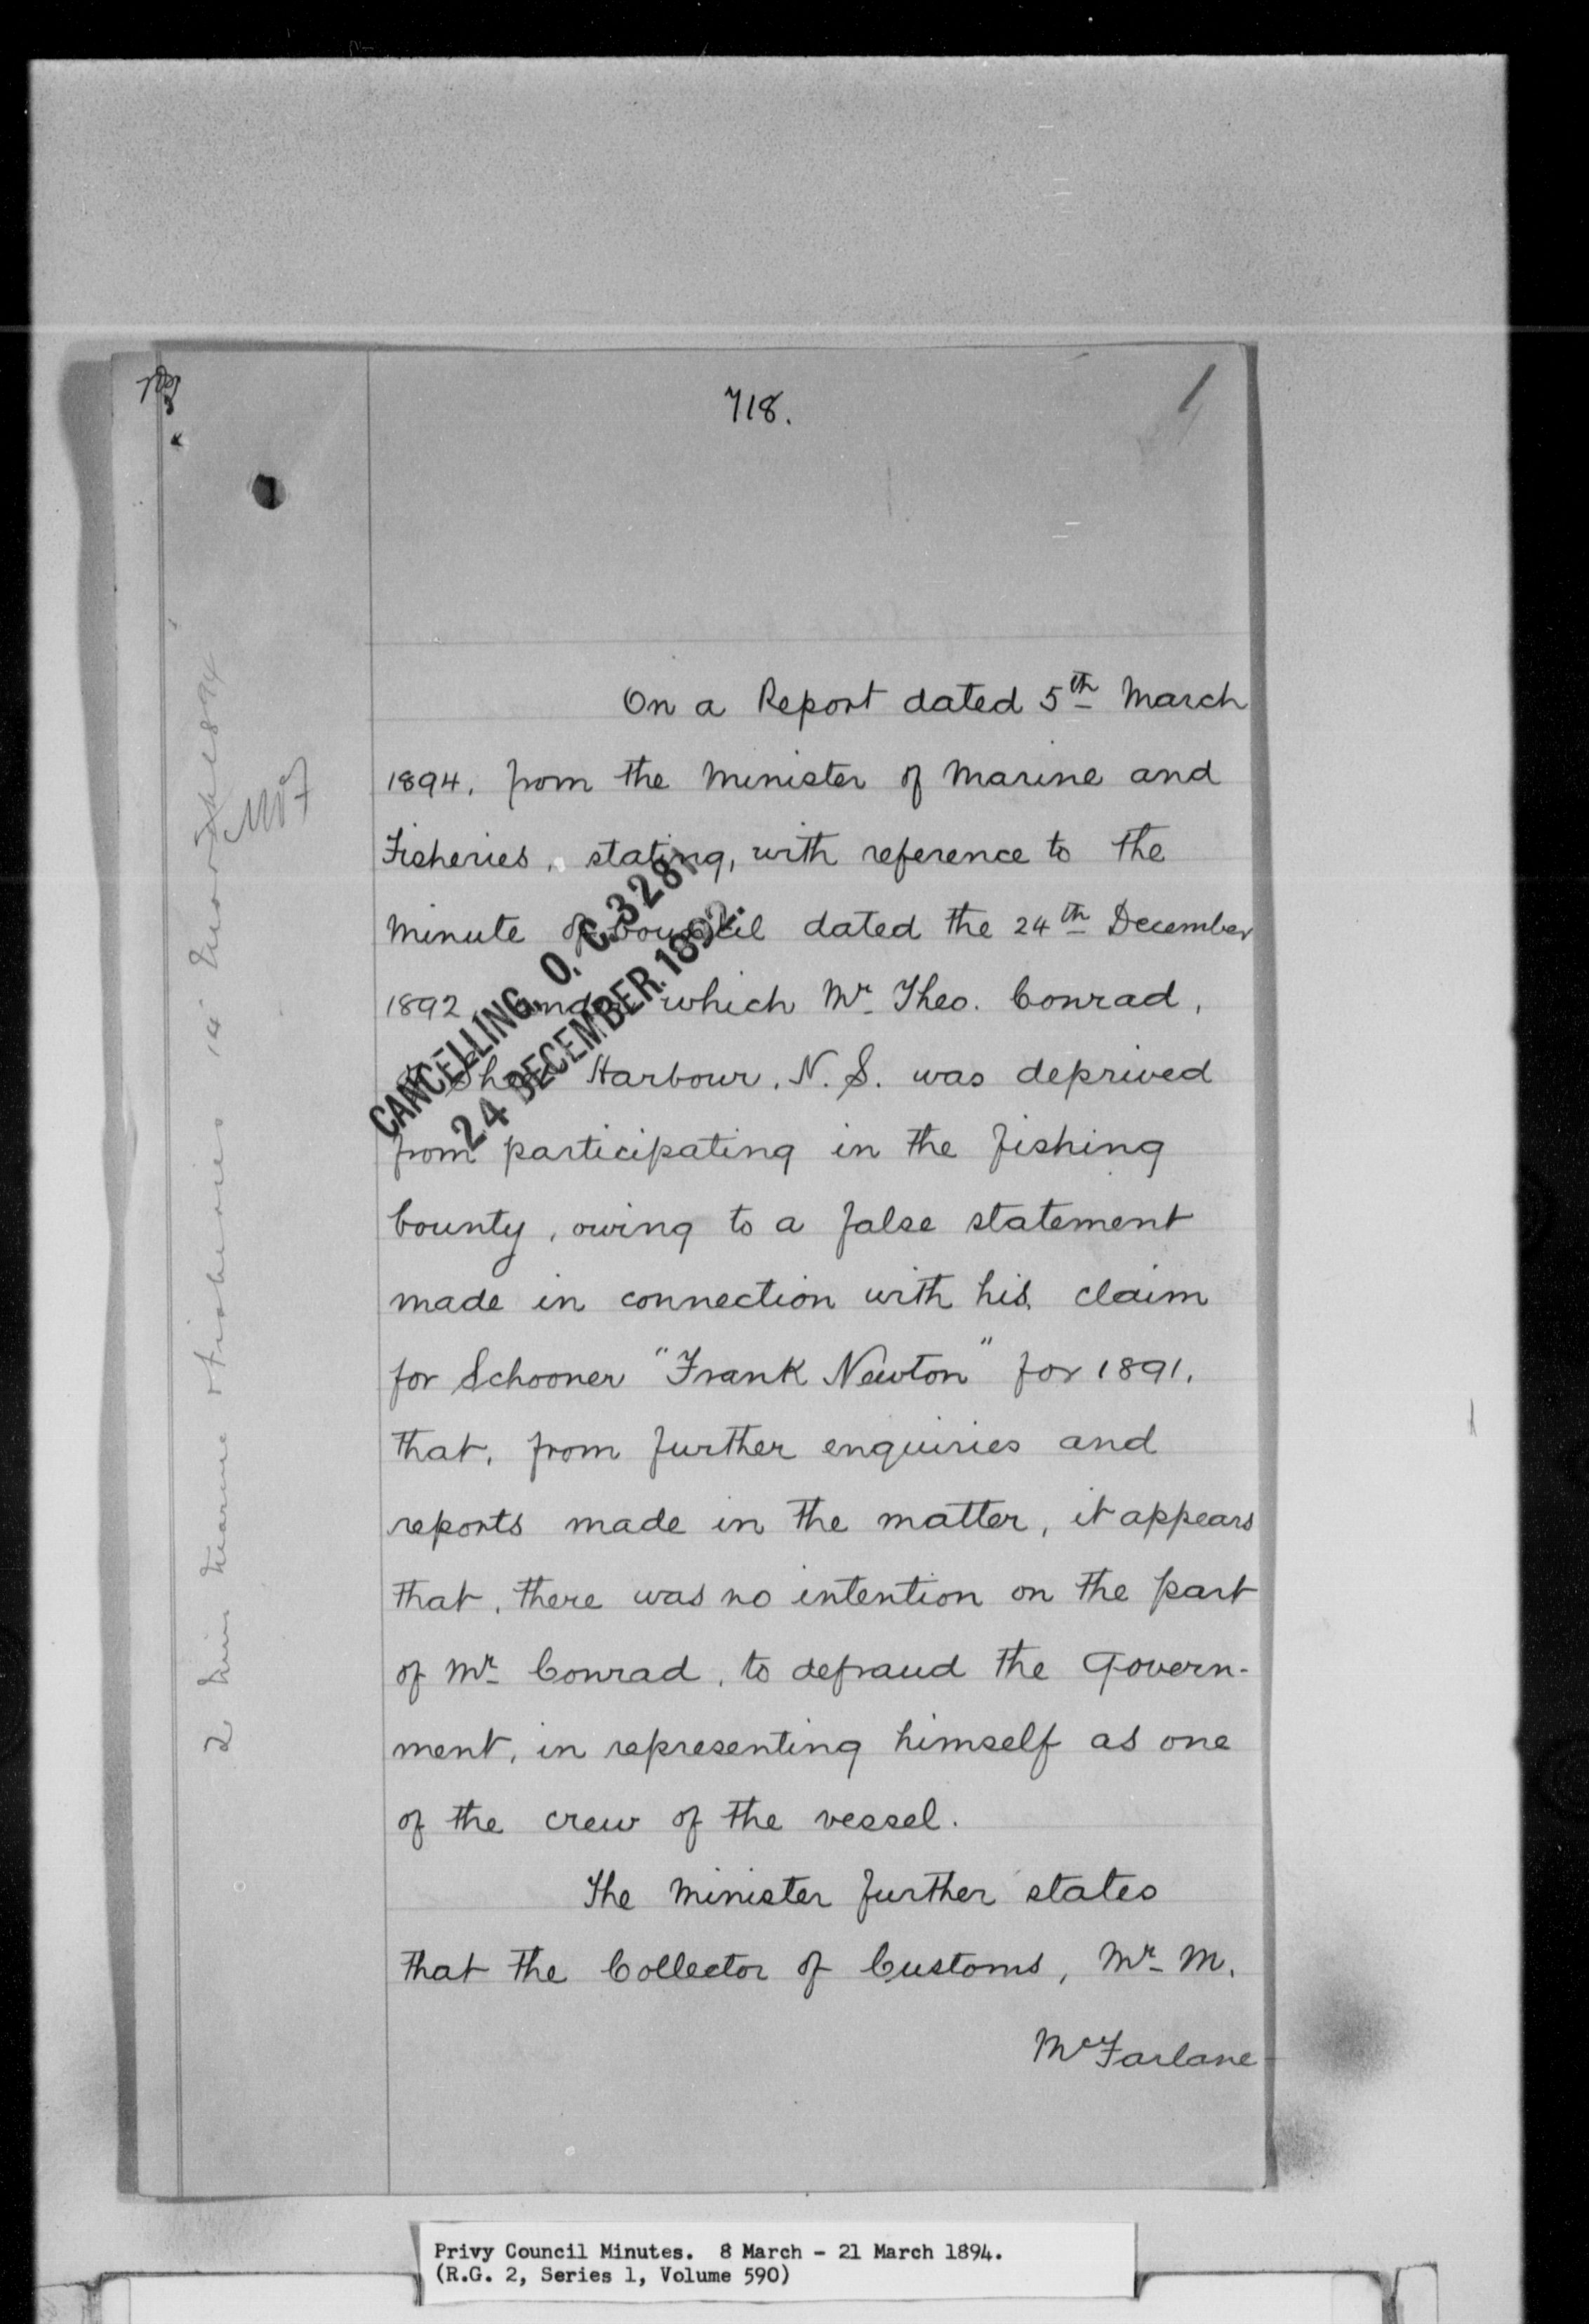 718.
1
On a Report dated 5th March
1894, from the Minister of Marine and
Fisheries, stating, with reference to the
Minute of Council dated the 24th December
1892, under which Mr Theo. Conrad,
of Sheet Harbour, N.S. was deprived
from participating in the fishing
bounty, owing to a false statement
made in connection with his claim
for Schooner "Frank Newton" for 1891,
that, from further enquiries and
reports made in the matter, it appears
that, there was no intention on the part
of Mr Conrad, to defraud the Govern-
ment, in representing himself as one
of the crew of the vessel.
The Minister further states
that the Collector of Customs, Mr M.
McFarlane
CANCELLING, O. C. 328
24 DECEMBER. 1892.
2 Min Marine & Fisheries 14 Mar 1894
Privy Council Minutes. 8 March - 21 March 1894.
(R.G. 2, Series 1, Volume 590)